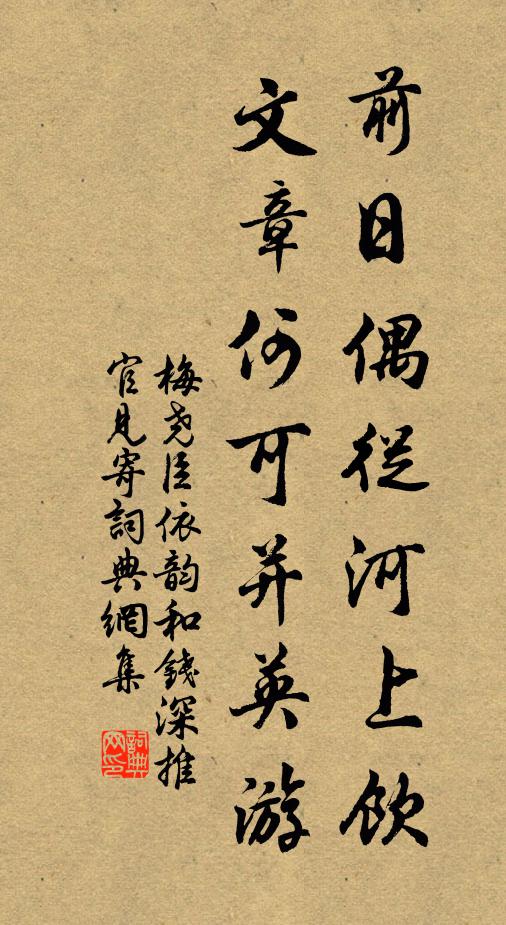 前日偶從河上飲
文章何可并英游
梅堯臣依韵和錢深推
官見寄詞典網集
詞典
网印